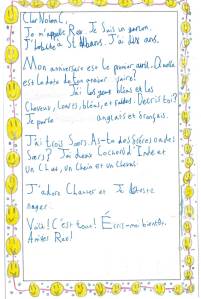 Cher Nolan C,
Je m'appelle Rae. Je Suis un garson.
J'habite à St Albans. J'ai dix ans.
Mon anniversaire est le premier avril. Quelle
est la date de ton anniversaire?
J'ai les yeux bleus et les
Cheveux, Courts, blonds, et raides. Decris toi?
Je parle anglais et français.
J'ai trois Sœurs. As-tu des frères ou des
Sœurs? J'ai deux Cochons d'Inde et
un Chat, un Chein et un Cheval.
J'adore Chanter et Je deteste
nager.
Voilà! C'est tout! Écris-moi bientôt.
Amitiés Rae!